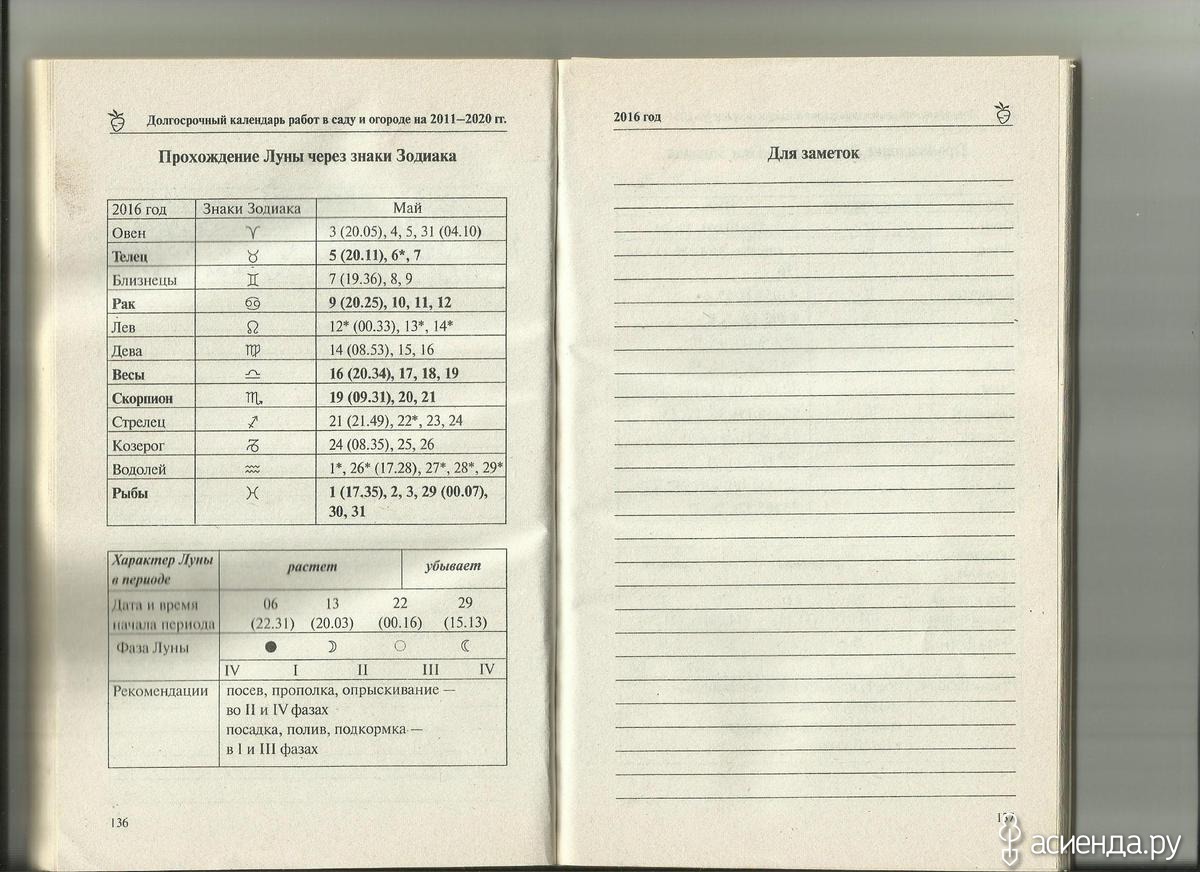 Долгосрочный календарь работ в саду и огороде на 2011—2020 гг.
Прохождение Луны через знаки Зодиака
2016 год Знаки Зодиака Май
Овен ♈ 3 (20.05), 4, 5, 31 (04.10)
Телец ♉ 5 (20.11), 6*, 7
Близнецы ♊ 7 (19.36), 8, 9
Рак ♋ 9 (20.25), 10, 11, 12
Лев ♌ 12* (00.33), 13*, 14*
Дева ♍ 14 (08.53), 15, 16
Весы ♎ 16 (20.34), 17, 18, 19
Скорпион ♏ 19 (09.31), 20, 21
Стрелец ♐ 21 (21.49), 22*, 23, 24
Козерог ♑ 24 (08.35), 25, 26
Водолей ♒ 1*, 26* (17.28), 27*, 28*, 29*
Рыбы ♓ 1 (17.35), 2, 3, 29 (00.07),
30, 31
Характер Луны
в периоде
растет убывает
Дата и время 06 13 22 29
начала периода (22.31) (20.03) (00.16) (15.13)
Фаза Луны ● ☽ ○ ☾
IV I II III IV
Рекомендации посев, прополка, опрыскивание —
во II и IV фазах
посадка, полив, подкормка —
в I и III фазах
136
2016 год
Для заметок
137
асиенда.ру